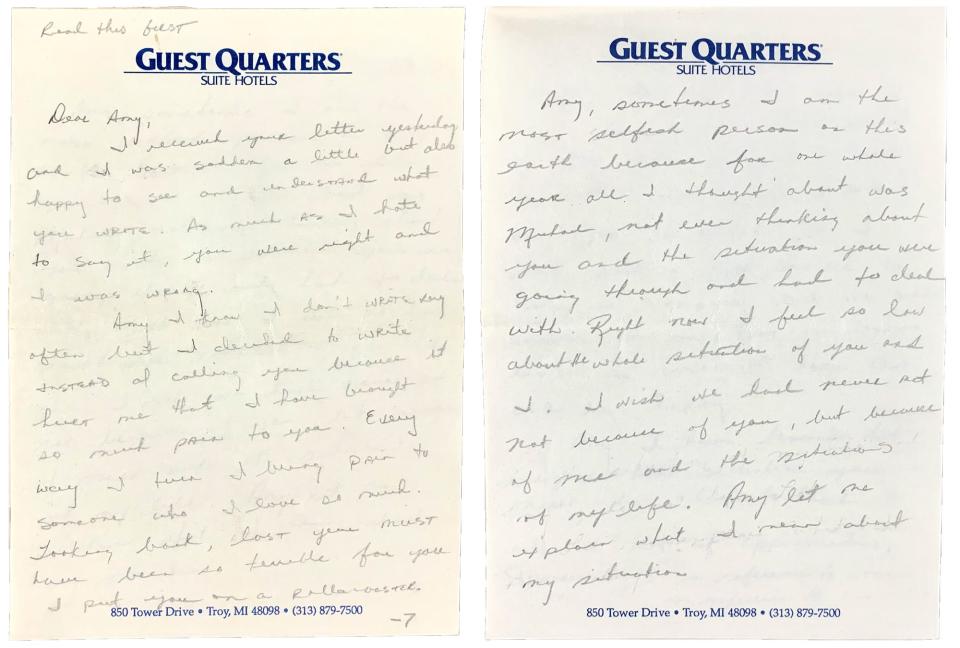 Read this first
GUEST QUARTERS®
SUITE HOTELS
Dear Amy,
I received your letter yesterday
and I was sadden a little but also
happy to see and understand what
you wrote. As much as I hate
to say it, you were right and
I was wrong.
Amy I know I don't write very
often but I decided to write
instead of calling you because it
hurt me that I have brought
so much pain to you. Every
way I turn I bring pain to
someone who I love so much.
Looking back, last year must
have been so terrible for you
I put you on a rollarcoaster.
850 Tower Drive • Troy, MI 48098 • (313) 879-7500
-7
GUEST QUARTERS®
SUITE HOTELS
Amy, sometimes I am the
most selfish person on this
earth because for one whole
year all I thought about was
Michael, not even thinking about
you and the situation you were
going through and had to deal
with. Right now I feel so low
about the whole situation of you and
I. I wish we had never met
not because of you, but because
of me and the situations
of my life. Amy let me
explain what I mean about
my situation
850 Tower Drive • Troy, MI 48098 • (313) 879-7500